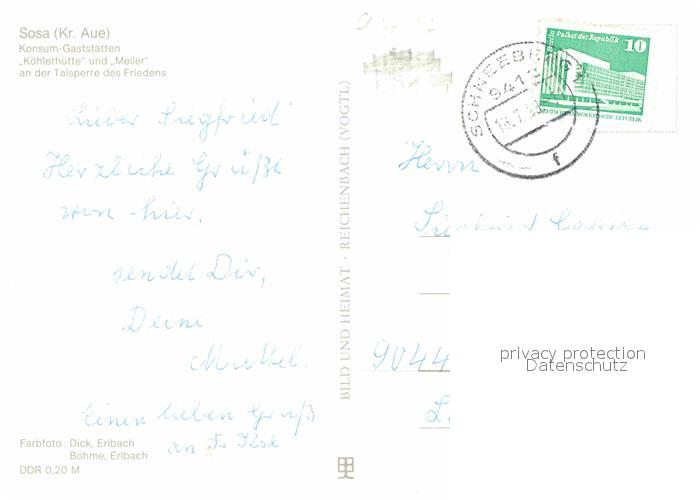 Sosa (Kr. Aue)
Konsum-Gaststätten
„Köhlerhütte" und „Meiler"
an der Talsperre des Friedens
Lieber Siegfried
Herzliche Grüße
von hier,
sendet Dir,
Deine
Muttel.
Einen lieben Gruß
an Fr. Ilse
Farbfoto: Dick, Erlbach
Böhme, Erlbach
DDR 0,20 M
BILD UND HEIMAT · REICHENBACH (VOGTL)
Berlin Palast der Republik
10
DEUTSCHE DEMOKRATISCHE REPUBLIK
SCHNEEBERG
941
f
Herrn
9044
privacy protection
Datenschutz